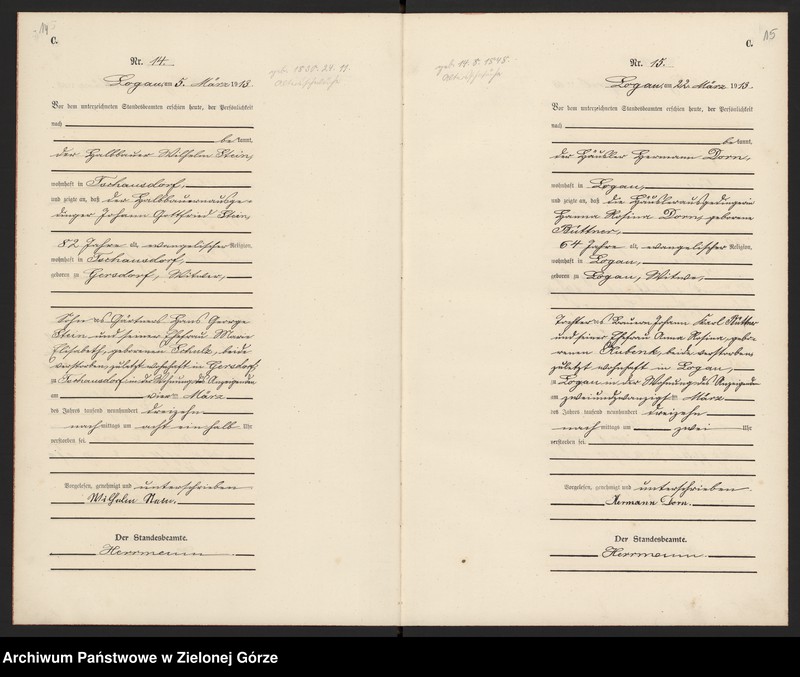 14
C.
Nr. 14.
Logau, am 5. März 1913.
Vor dem unterzeichneten Standesbeamten erschien heute, der Persönlichkeit
nach
bekannt,
der Halbbauer Wilhelm Stein,
wohnhaft in Tschausdorf,
und zeigte an, daß der Halbbauernausge-
dinger Johann Gottfried Stein,
82 Jahre alt, evangelischer Religion,
wohnhaft in Tschausdorf,
geboren zu Gersdorf, Witwer,
Sohn des Gärtners Hans George
Stein und seiner Ehefrau Marie
Elisabeth, geborenen Schulz, beide
verstorben, zuletzt wohnhaft in Gersdorf,
zu Tschausdorf in der Wohnung des Anzeigenden
am vier März
des Jahres tausend neunhundert dreizehn
nachmittags um acht ein halb Uhr
verstorben sei.
Vorgelesen, genehmigt und unterschrieben
Wilhelm Stein.
Der Standesbeamte.
Herrmann
15
C.
geb. 14.8.1848
Nr. 15.
Logau, am 22. März 1913.
Vor dem unterzeichneten Standesbeamten erschien heute, der Persönlichkeit
nach
bekannt,
der Häusler Hermann Dorn,
wohnhaft in Logau,
und zeigte an, daß die Häuslerausgedingerin
Hanna Rosina Dorn, geborene
Büttner,
64 Jahre alt, evangelischer Religion,
wohnhaft in Logau,
geboren zu Logau, Witwe,
Tochter des Bauern Johann Karl Büttner
und seiner Ehefrau Anna Rosina, gebo-
renen beide verstorben
zuletzt wohnhaft in Logau,
zu Logau in der Wohnung des Anzeigenden
am zweiundzwanzigsten März
des Jahres tausend neunhundert dreizehn
nachmittags um zwei Uhr
verstorben sei.
Vorgelesen, genehmigt und unterschrieben
Hermann Dorn.
Der Standesbeamte.
Herrmann
Archiwum Państwowe w Zielonej Górze